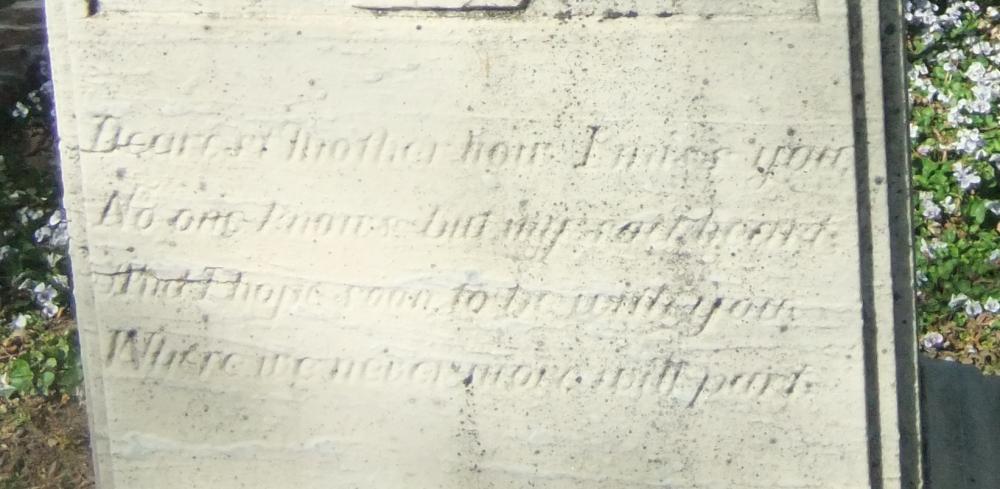 Dearest Mother how I miss you
No one knows but my sad heart.
And I hope soon to be with you
Where we never more will part.